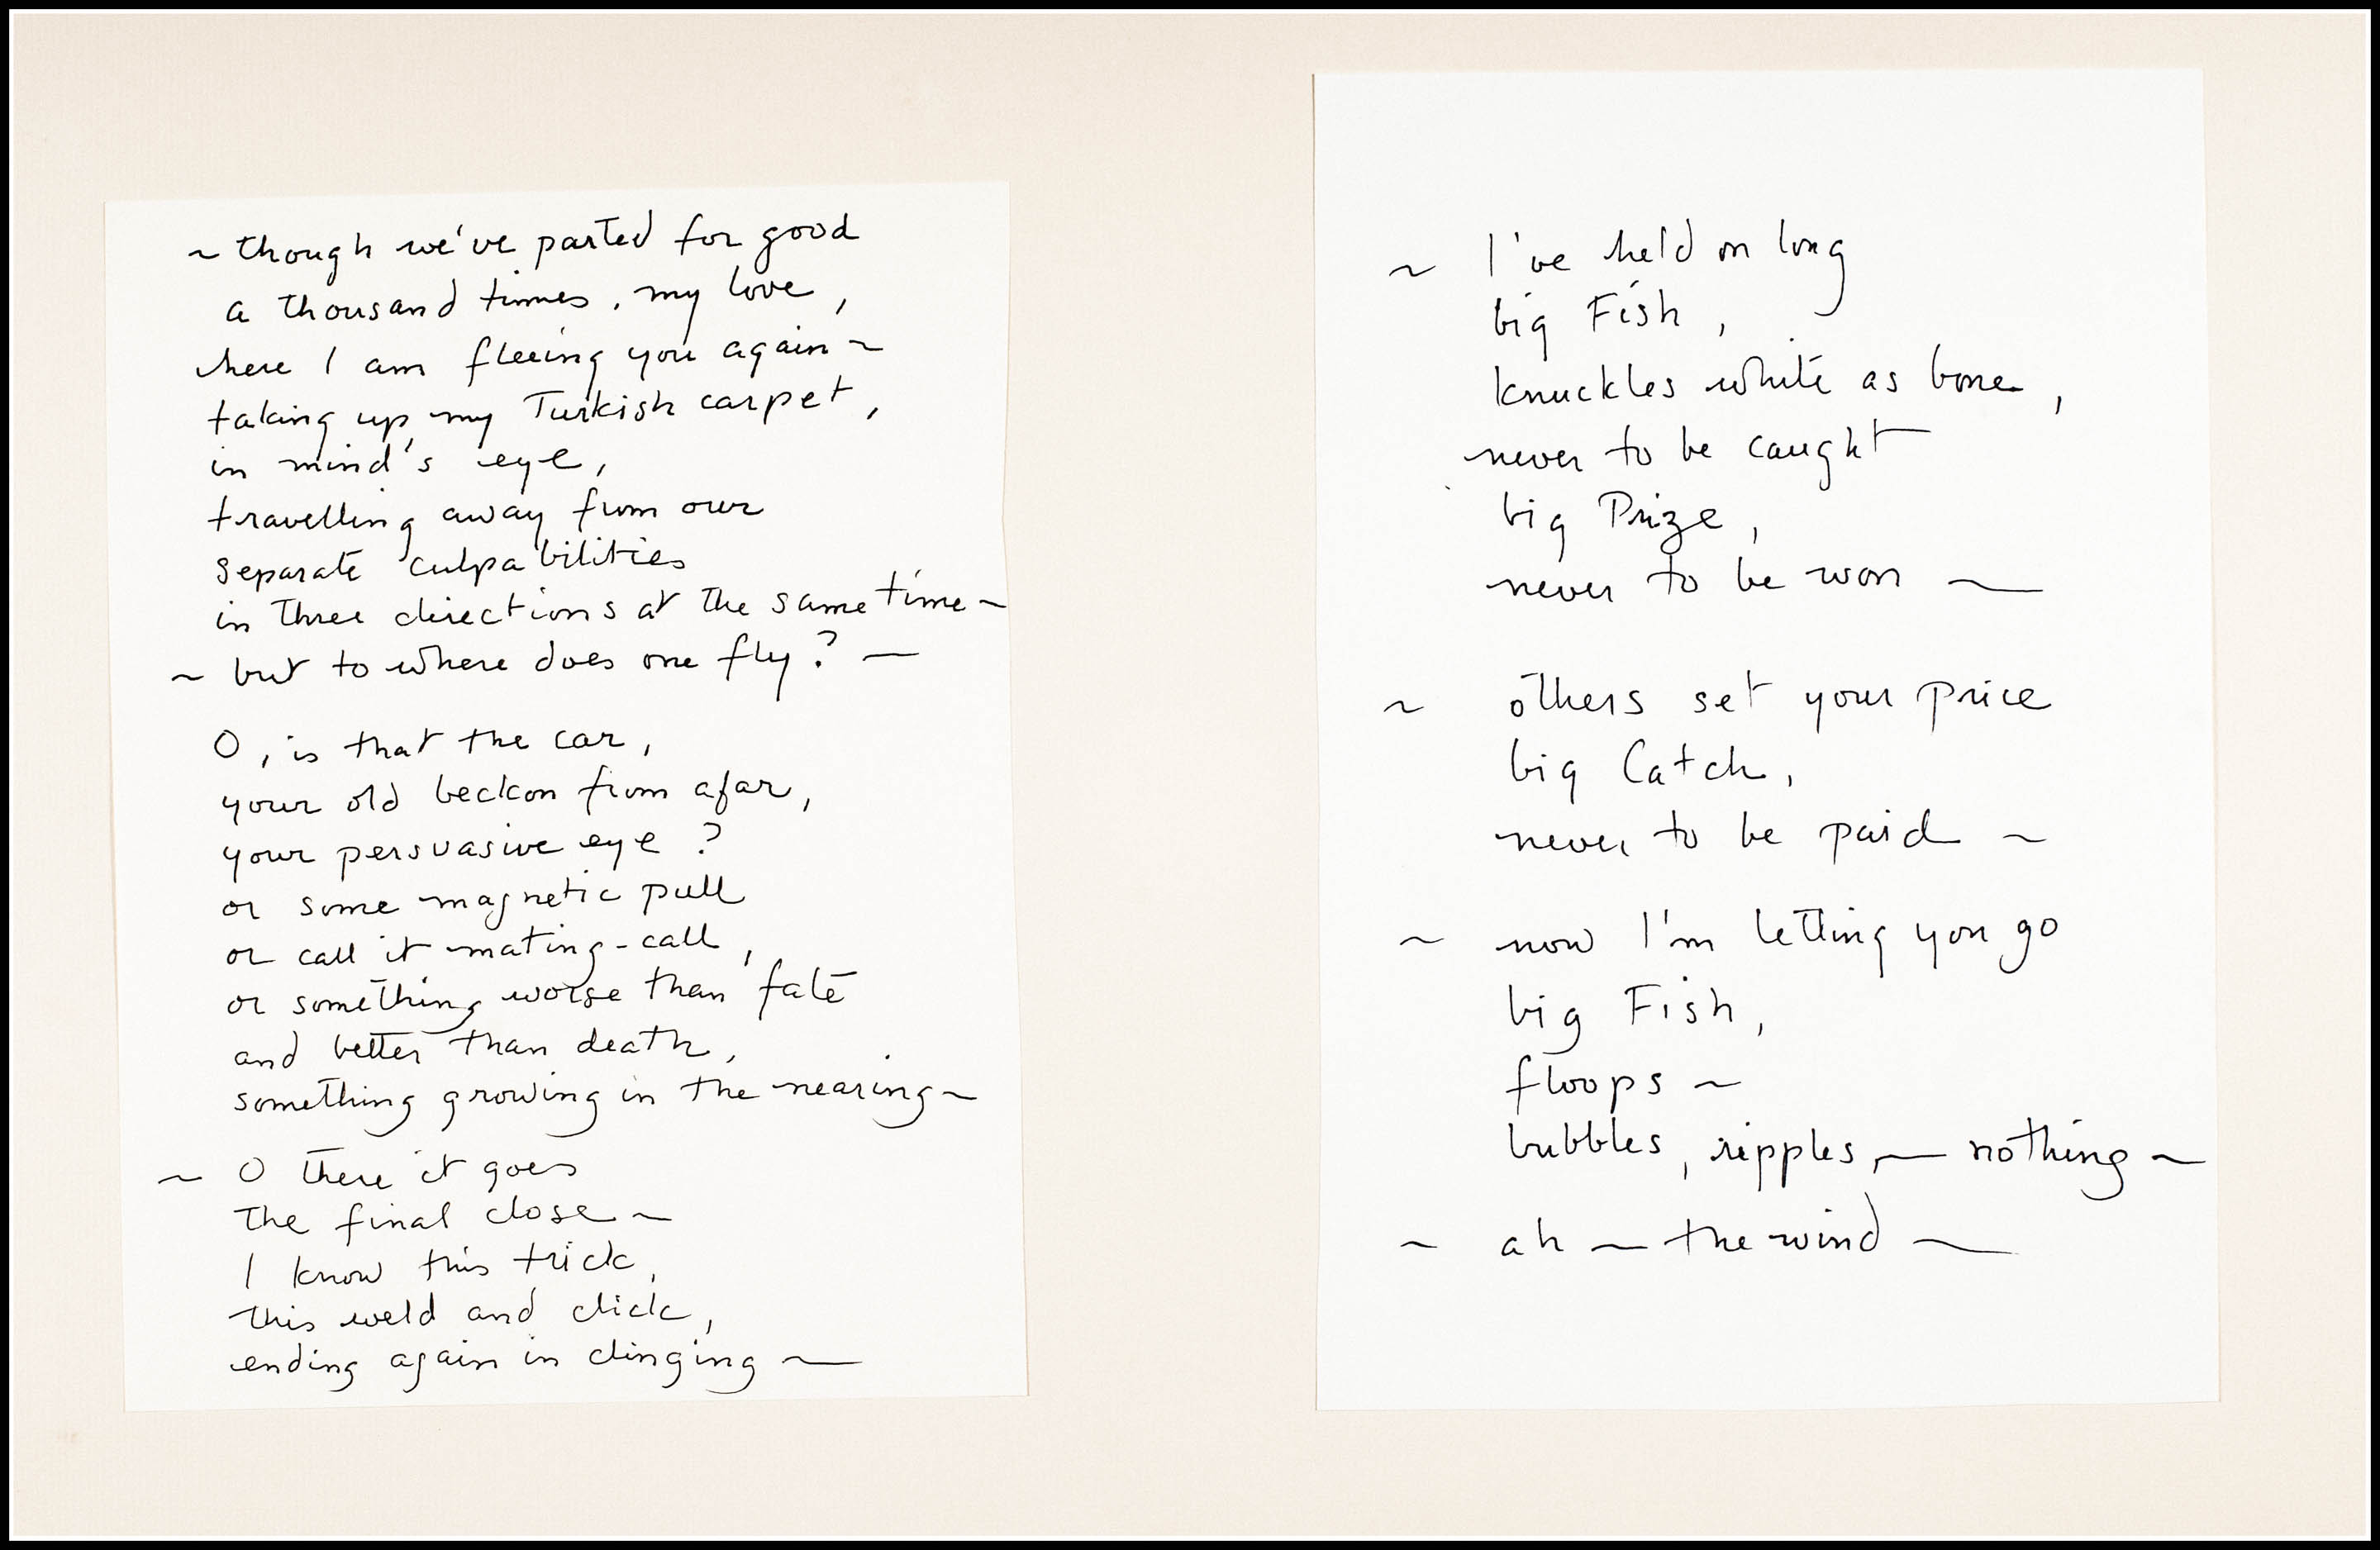 ~ though we've parted for good
a thousand times, my love,
here I am fleeing you again ~
taking up my Turkish carpet,
in mind's eye,
travelling away from our
separate culpabilities
in three directions at the same time ~
~ but to where does one fly? —
O, is that the car,
your old beckon from afar,
your persuasive eye?
or some magnetic pull
or call it mating-call,
or something worse than fate
and better than death,
something growing in the nearing ~
~ O there it goes
the final close ~
I know this trick,
this weld and click,
ending again in clinging —
~ I've held on long
big Fish,
knuckles white as bone,
never to be caught
big Prize,
never to be won —
~ others set your price
big Catch,
never to be paid ~
~ now I'm letting you go
big Fish,
floops ~
bubbles, ripples, — nothing ~
~ ah — the wind —